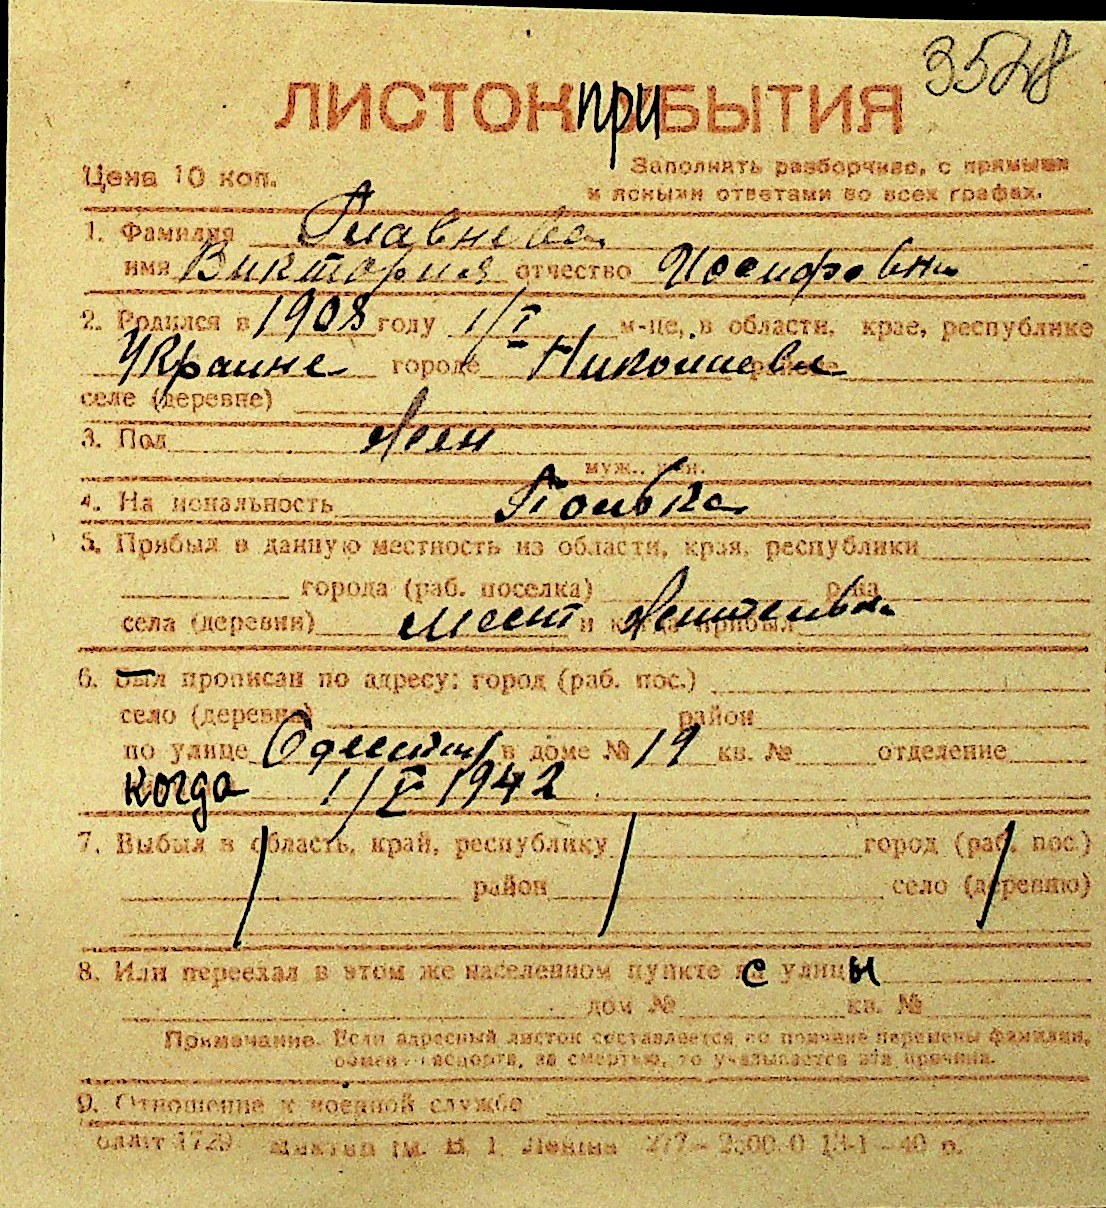 3528
ЛИСТОК при БЫТИЯ
Цена 10 коп.
Заполнять разборчиво, с прямыми
и ясными ответами во всех графах.
1. Фамилия Главнева
имя Виктория отчество Иосифовна
2. Родился в 1908 году 1/I м-це, в области, крае, республике
Украине городе Николаеве районе
селе (деревне)
3. Пол жен
муж., жен.
4. Национальность Полька
5. Прибыл в данную местность из области, края, республики
города (раб. поселка) р-на
села (деревни) мест жительн и когда прибыл
6. Был прописан по адресу: город (раб. пос.)
село (деревня) район
по улице Одесская в доме № 19 кв. № отделение
когда 1/V 1942
7. Выбыл в область, край, республику город (раб. пос.)
район село (деревню)
8. Или переехал в этом же населенном пункте с улицы
дом № кв. №
Примечание. Если адресный листок составляется по причине перемены фамилии,
обмена паспорта, за смертью, то указывается эта причина.
9. Отношение к военной службе
1729 им. В. І. Леніна 277 – 2500.0 13-1 – 40 р.